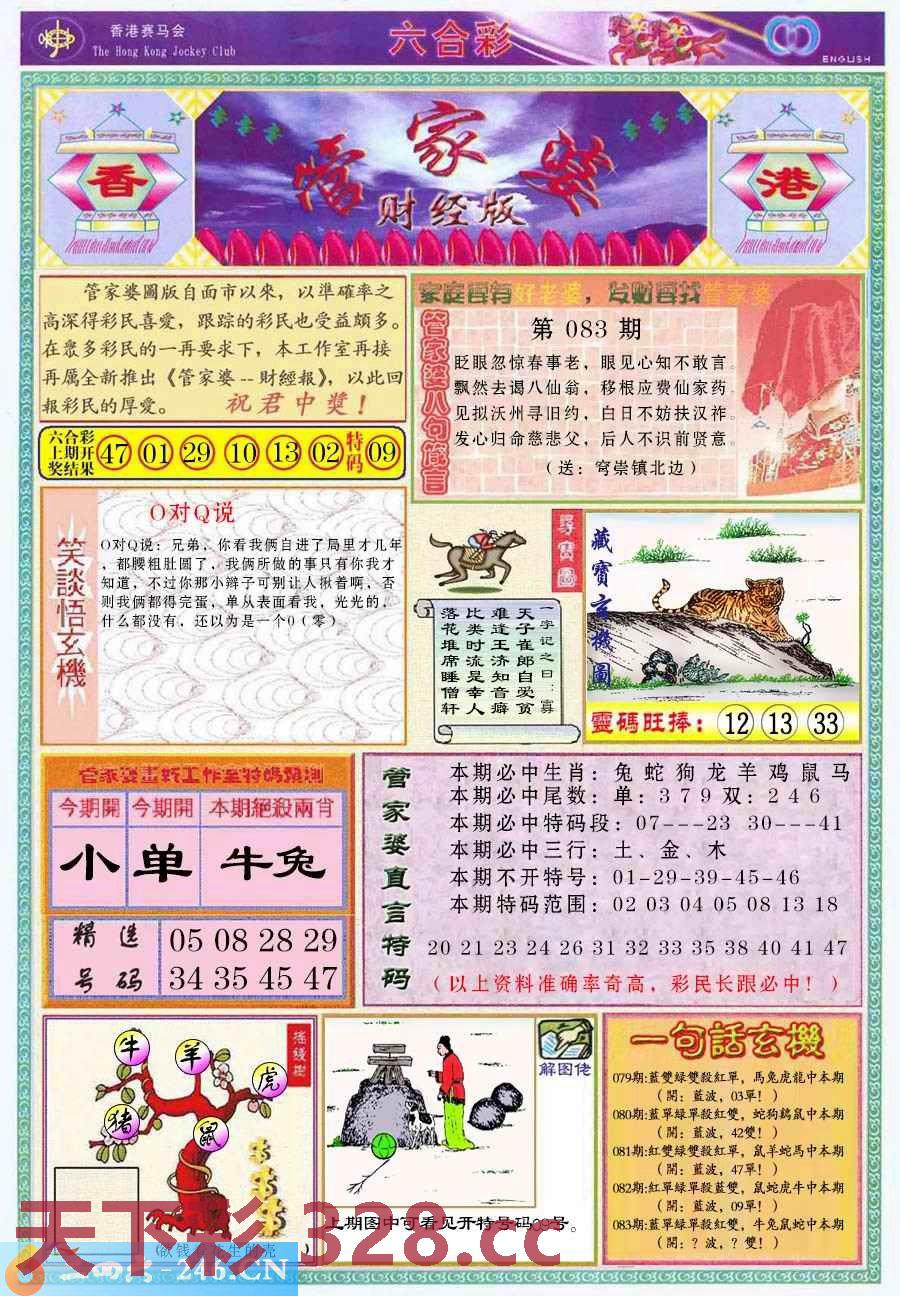 香港赛马会
The Hong Kong Jockey Club
六合彩
ENGLISH
香
管家婆
财经版
港
管家婆圖版自面市以來，以準確率之
高深得彩民喜愛，跟踪的彩民也受益頗多。
在眾多彩民的一再要求下，本工作室再接
再厲全新推出《管家婆--財經報》，以此回
報彩民的厚愛。 祝君中獎！
六合彩
上期开
奖结果
47 01 29 10 13 02 特码 09
家庭要有好老婆，发财要找管家婆
管家婆八句箴言
第 083 期
眨眼忽惊春事老，眼见心知不敢言。
飘然去谒八仙翁，移根应费仙家药。
见拟沃州寻旧约，白日不妨扶汉祚。
发心归命慈悲父，后人不识前贤意。
（送：穹崇镇北边）
笑談悟玄機
O对Q说
O对Q说：兄弟，你看我俩自进了局里才几年
，都腰粗肚圆了，我俩所做的事只有你我才
知道，不过你那小辫子可别让人揪着啊，否
则我俩都得完蛋，单从表面看我，光光的，
什么都没有，还以为是一个0（零）
尋寶圖
一字记之曰：寡
天子崔郎自爱贫
难逢王济知音癖
比类时流是幸人
落花堆席睡僧轩
藏寶玄機圖
靈碼旺捧： 12 13 33
今期開 今期開 本期絕殺兩肖
小 单 牛兔
精选
号码
05 08 28 29
34 35 45 47
管家婆直言特码
本期必中生肖：兔 蛇 狗 龙 羊 鸡 鼠 马
本期必中尾数：单：3 7 9 双：2 4 6
本期必中特码段：07---23 30---41
本期必中三行：土、金、木
本期不开特号：01-29-39-45-46
本期特码范围：02 03 04 05 08 13 18
20 21 23 24 26 31 32 33 35 38 40 41 47
（以上资料准确率奇高，彩民长跟必中！）
摇錢樹
牛
羊
虎
猪
鼠
解图佬
上期图中可看见开特号码09号。
一句話玄機
079期:藍雙绿雙殺紅單，馬兔虎龍中本期
（開：藍波，03單！）
080期:藍單綠單殺紅雙，蛇狗鷄鼠中本期
（開：藍波，42雙！）
081期:紅雙绿雙殺紅單，鼠羊蛇馬中本期
（開：藍波，47單！）
082期:紅單綠單殺藍雙，鼠蛇虎牛中本期
（開：藍波，09單！）
083期:藍單綠單殺紅雙，牛兔鼠蛇中本期
（開：？波，？雙！）
天下彩 328.cc
-246.CN